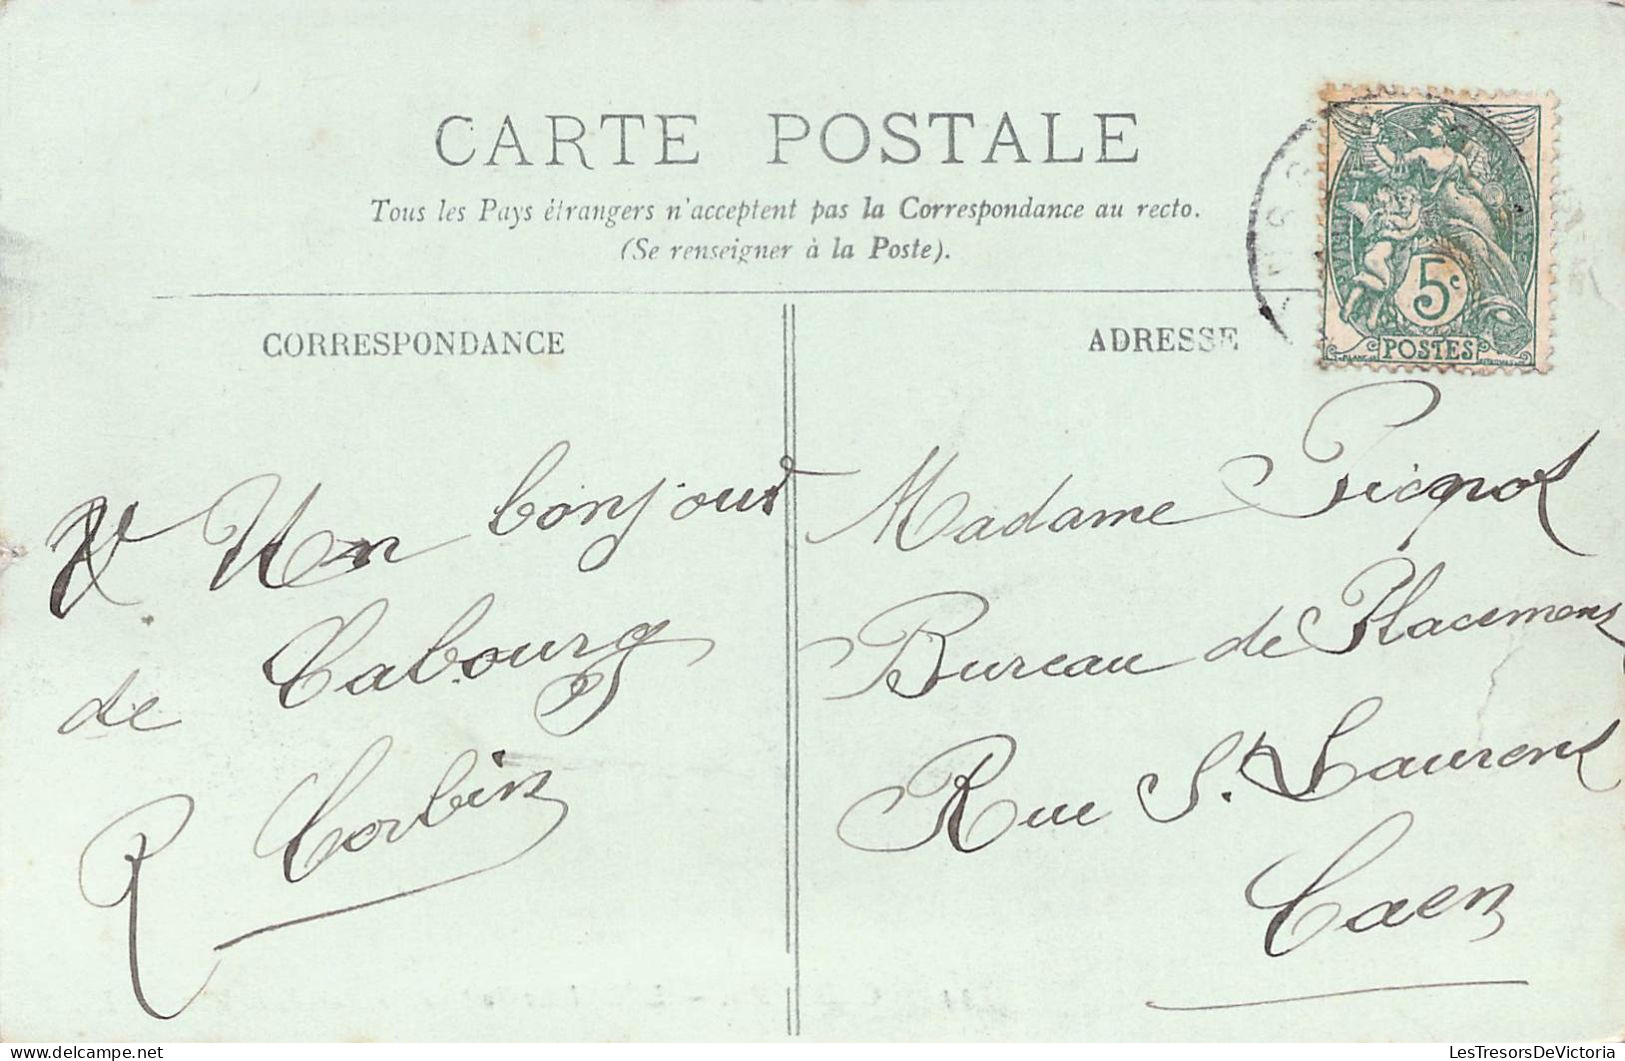 CARTE POSTALE
Tous les Pays étrangers n'acceptent pas la Correspondance au recto.
(Se renseigner à la Poste).
CORRESPONDANCE
Un bonjour
de Cabourg
R Corbin
ADRESSE
5c
POSTES
Madame Picqnot
Bureau de Placement
Rue St. Laurent
Caen
LesTresorsDeVictoria